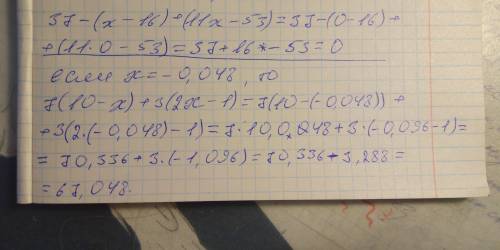 37-(x-16)+(11x-53)=37-(0-16)+
+(11·0-53)=37+16-53=0
если x=-0,048, то
7(10-x)+3(2x-1)=7(10-(-0,048))+
+3(2·(-0,048)-1)=7·10,048+3·(-0,096-1)=
=70,336+3·(-1,096)=70,336-3,288=
=67,048.